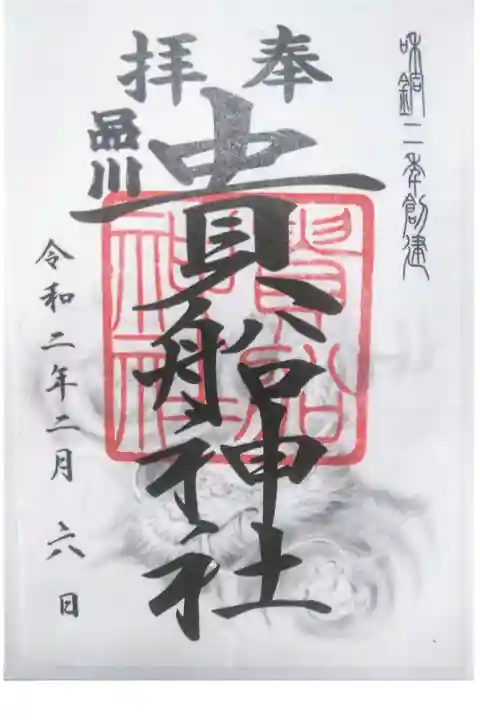 和銅二年創建
奉拝
品川
貴船神社
貴船
神社
令和二年二月六日